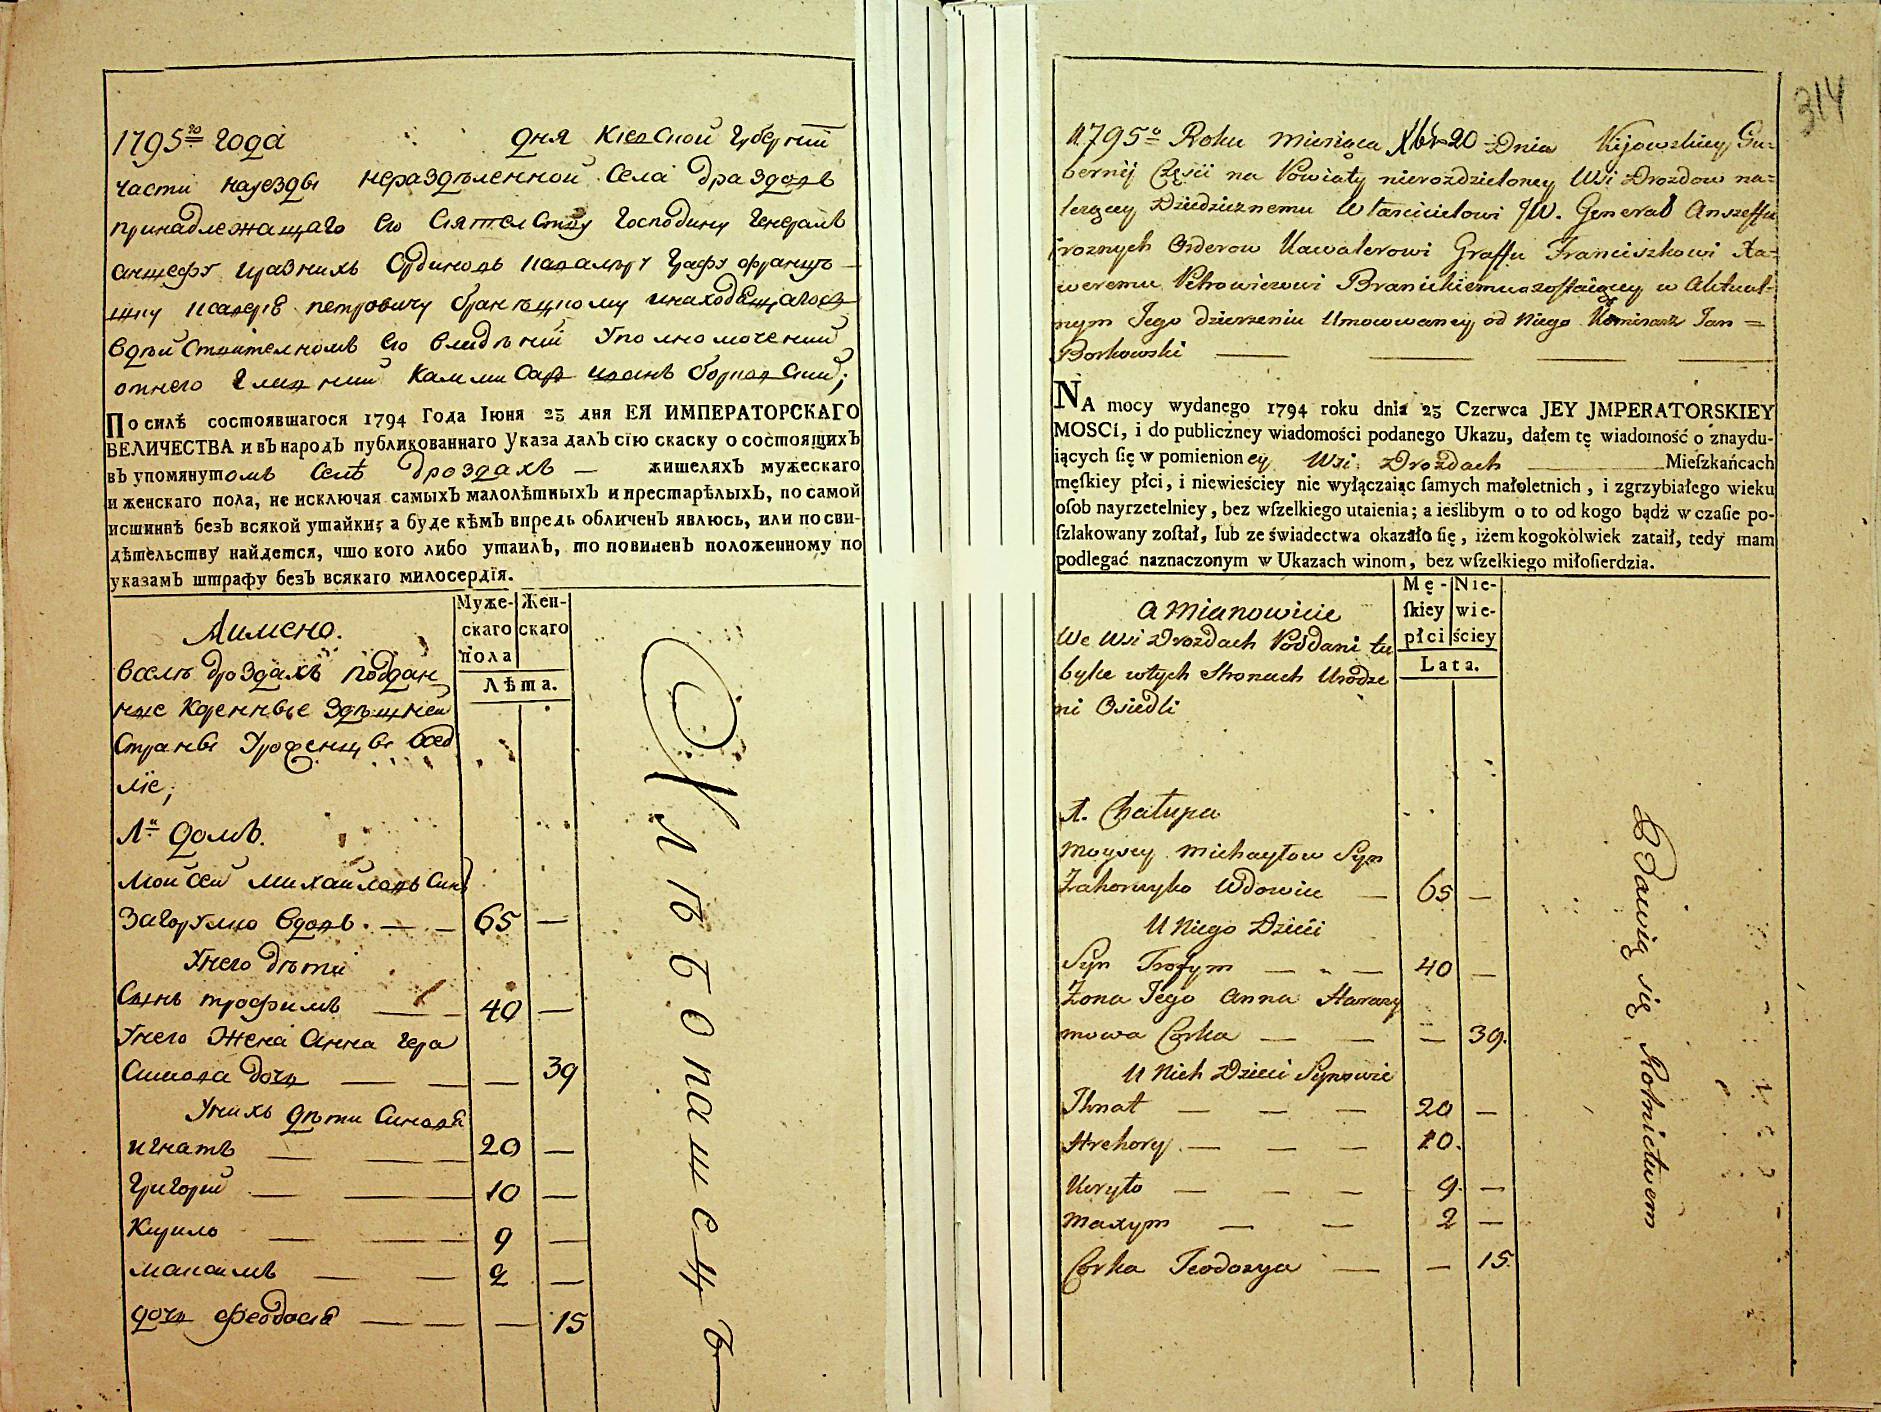 1795го года дня Киевской Губернїи
части науезды нераздѣленной Села Дроздовъ
принадлежащаго его Сиятелству Господину Генералъ
аншефу иразнихъ Ординовъ Кавалеру Графу Францъ
ишку Ксаверїю петровичу браницкому инаходящагося
вдѣйствителномъ его владѣнїй Уполномоченний
отнего Главний Каммисаръ Иванъ борковский;
По силѣ состоявшагося 1794 Года Іюня 23 дня ЕЯ ИМПЕРАТОРСКАГО
ВЕЛИЧЕСТВА и въ народЪ публикованнаго Указа далЪ сїю скаску о состоящихЪ
въ упомянутомъ Селѣ Дроздахъ — жителяхЪ мужескаго
и женскаго пола, не исключая самыхЪ малолѣтныхЪ и престарѣлыхЪ, по самой
истиннѣ безЪ всякой утайки; а буде кѣмЪ впредь обличенЪ явлюсь, или по сви-
дѣтельству найдется, что кого либо утаилЪ, то повиненЪ положенному по
указамЪ штрафу безЪ всякаго милосердїя.
Муже- Жен-
скаго скаго
пола
Лѣта.
Аимено.
Вселѣ Дроздахъ поддан
ние Кореннъе Здѣшней
Странъ Уроженцъ осед
лїе;
1й домъ.
Мойсей михайловъ Синъ
Загорулко вдовъ. — — 65 —
Унего дѣти
Синъ трофимъ — — 40 —
Унего Жена Анна Гера
Симова дочь — — — 39
Унихъ дѣти Синовя
игнатъ — — — 20 —
Григорий — — — 10 —
Кирило — — — 9 —
максимъ — — 2 —
дочь Феодосїя — — — 15
Хлѣбопашецъ
314
1795o Roku Miesiąca Xbra 20 Dnia Kijowskiey Gu-
bernij Części na Powiaty nierozdzieloney Wsi Drozdow na-
lezącey Dziedzicznemu Włascicielowi JW. Generał Anszeffu
i roznych Orderow Kawalerowi Graffu Franciszkowi Xa-
weremu Petrowiczowi Branickiemu zostaiącey w Aktual-
nym Jego dzierzeniu Umocowaney od Niego Komisarz Jan =
Borkowski — — — —
NA mocy wydanego 1794 roku dnia 23 Czerwca JEY JMPERATORSKIEY
MOSCI, i do publiczney wiadomości podanego Ukazu, dałem tę wiadomość o znaydu-
iących ſię w pomienioney Wsi Drozdach Mieſzkańcach
męſkiey płci, i niewieściey nie wyłączaiąc ſamych małoletnich, i zgrzybiałego wieku
oſob nayrzetelniey, bez wſzelkiego utaienia; a ieślibym o to od kogo bądź w czaſie po-
ſzlakowany zoſtał, lub ze świadectwa okazało ſię, iżem kogokolwiek zataił, tedy mam
podlegać naznaczonym w Ukazach winom, bez wſzelkiego miłoſierdzia.
Mę- Nie-
ſkiey wie-
płci ściey
Lata.
a Mianowicie
We Wsi Drozdach Poddani tu
byłe wtych Stronach Urodze
ni Osiedli
1. Chałupa
Moysey Michayłow Syn
Zahorulko Wdowiec — 65 —
U Niego Dzieci
Syn Trofym — — — 40 —
Zona Jego Anna Harasy
mowa Corka — — — 39.
U Nich Dzieci Synowie
Ihnat — — — 20 —
Hrehory — — — 10.
Kiryło — — — 9. —
Maxym — — 2 —
Corka Teodozya — — 15.
Bawią się Rolnictwem